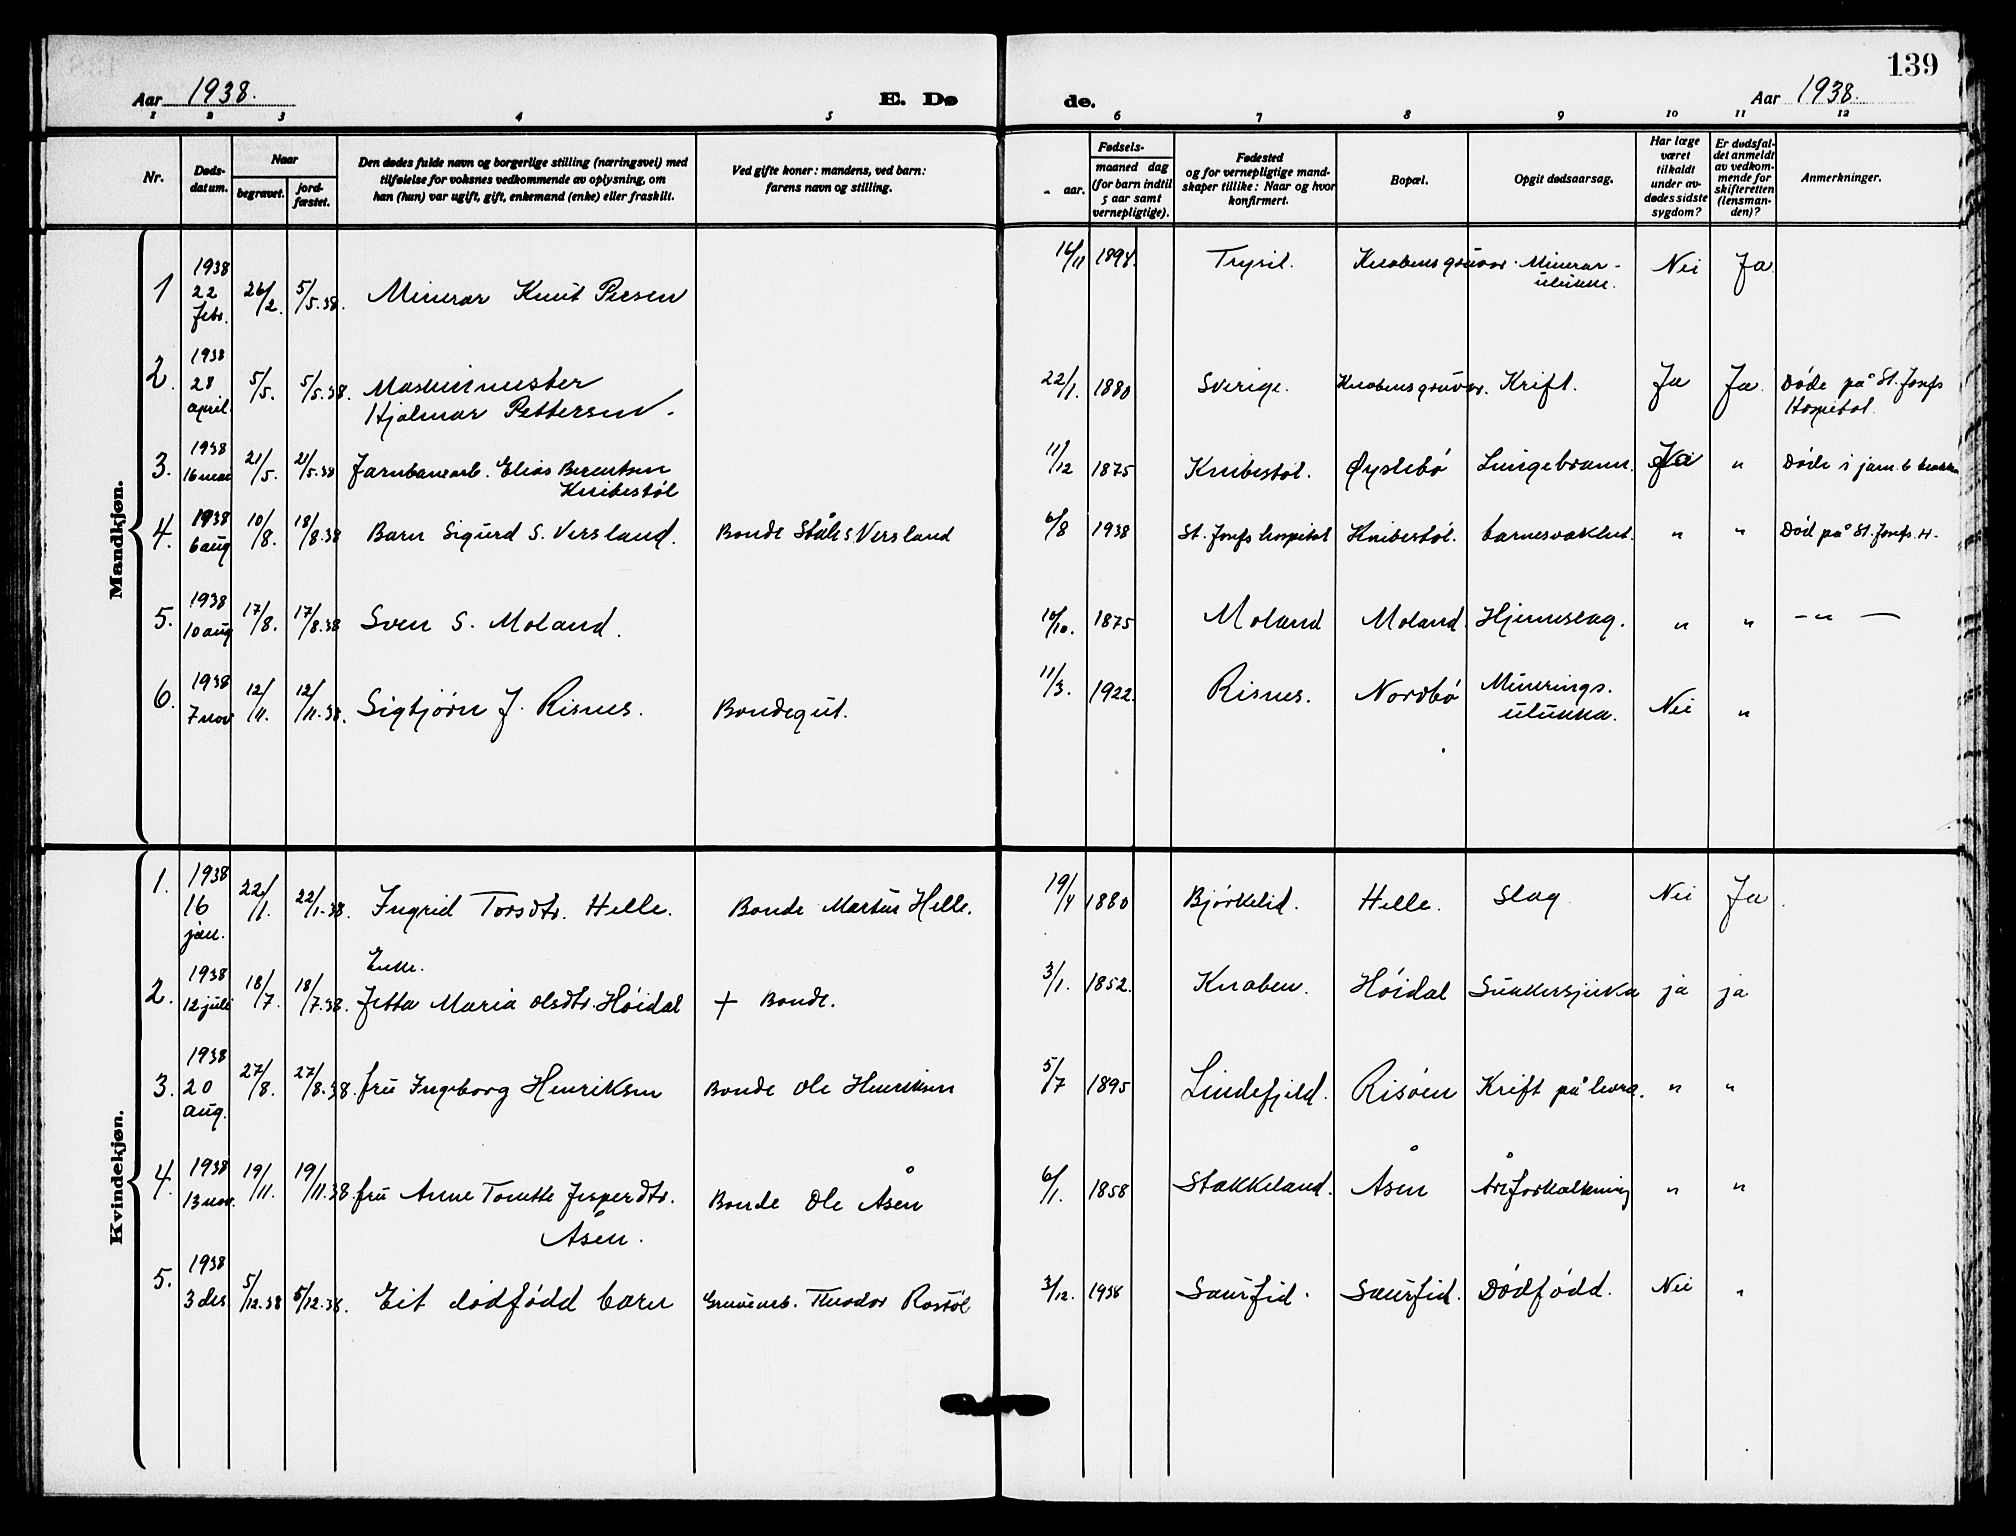 139
Aar 1938. E. Dø de. Aar 1938.
1 2 3 4 5 6 7 8 9 10 11 12
Nr.
Døds-
datum.
Naar
begravet.
jord-
fæstet.
Den dødes fulde navn og borgerlige stilling (næringsvei) med
tilføielse for voksnes vedkommende av oplysning, om
han (hun) var ugift, gift, enkemand (enke) eller fraskilt.
Ved gifte koner: mandens, ved barn:
farens navn og stilling.
Fødsels-
aar.
maaned dag
(for barn indtil
5 aar samt
vernepligtige).
Fødested
og for vernepligtige mand-
skaper tillike: Naar og hvor
konfirmert.
Bopæl.
Opgit dødsaarsag.
Har læge
været
tilkaldt
under av-
dødes sidste
sygdom?
Er dødsfal-
det anmeldt
av vedkom-
mende for
skifteretten
(lensman-
den)?
Anmerkninger.
Mandkjøn.
1 1938 22 febr. 26/2. 5/5.38. Minerar Knut Persen 16/11 1894. Trysil. Knabens gruvor. Minerar-
ulukke. Nei Ja
2. 1938 28 april. 5/5. 5/5.38. Maskinmester
Hjalmar Pettersen. 22/1. 1880 Sverige. Knabens gruvor. Krift. Ja Ja. Døde på St. Josefs
Hospital.
3. 1938 16 mai 21/5. 21/5.38 Jarnbanearb. Elias Berentsen
Knibestøl 11/12 1875 Knibestøl. Øyslebø Lungebrann. Ja " Døde i jarn.b brakke
4. 1938 6 aug 10/8. 18/8.38 Barn Sigurd S. Versland. Bonde Ståle S Versland 6/8 1938 St. Josefs hospital Knibestøl. barnesvakhet. " " Død på St. Josefs. H.
5. 1938 10 aug 17/8. 17/8.38 Sven S. Moland. 10/10. 1875 Moland Moland. Hjerneslag. " " - " -
6. 1938 7 nov 12/11. 12/11.38. Sigbjørn J. Risnes. Bondegut. 11/3. 1922. Risnes. Nordbø Minerings.
ulukka. Nei "
Kvindekjøn.
1. 1938 16 jan. 22/1. 22/1.38. Ingrid Torsdtr. Helle. Bonde Martin Helle. 19/4 1880 Bjørkelid. Helle. Slag Nei Ja.
Enke.
2. 1938 12 juli 18/7. 18/7.38. Jetta Maria Olsdtr. Høidal + Bonde. 3/1. 1852. Knaben. Høidal Sukkersjuka ja ja
3. 1938 20 aug. 27/8. 27/8.38. fru Ingeborg Henriksen Bonde Ole Henriksen 5/7 1895 Lindefjeld. Risøen Krift på levra. " "
4. 1938 13 nov. 19/11. 19/11.38. fru Anne Tomette Jesperdtr.
Åsen. Bonde Ole Åsen 6/1. 1858 Stakkeland. Åsen Åreforkalkning " "
5. 1938 3 des 5/12.38 5/12.38. Eit dødfødd barn Gruvearb. Theodor Rostøl 3/12. 1938 Saurfid. Saurfid. Dødfødd. Nei "